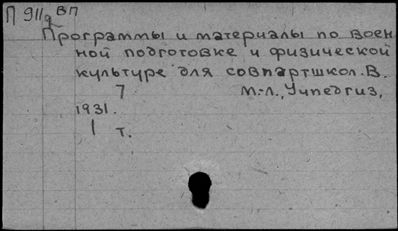 П 911д ВП
Программы и материалы по воен
ной подготовке и физической
культуре для совпартшкол. В.
7 М.-Л., Учпедгиз,
1931.
1 т.